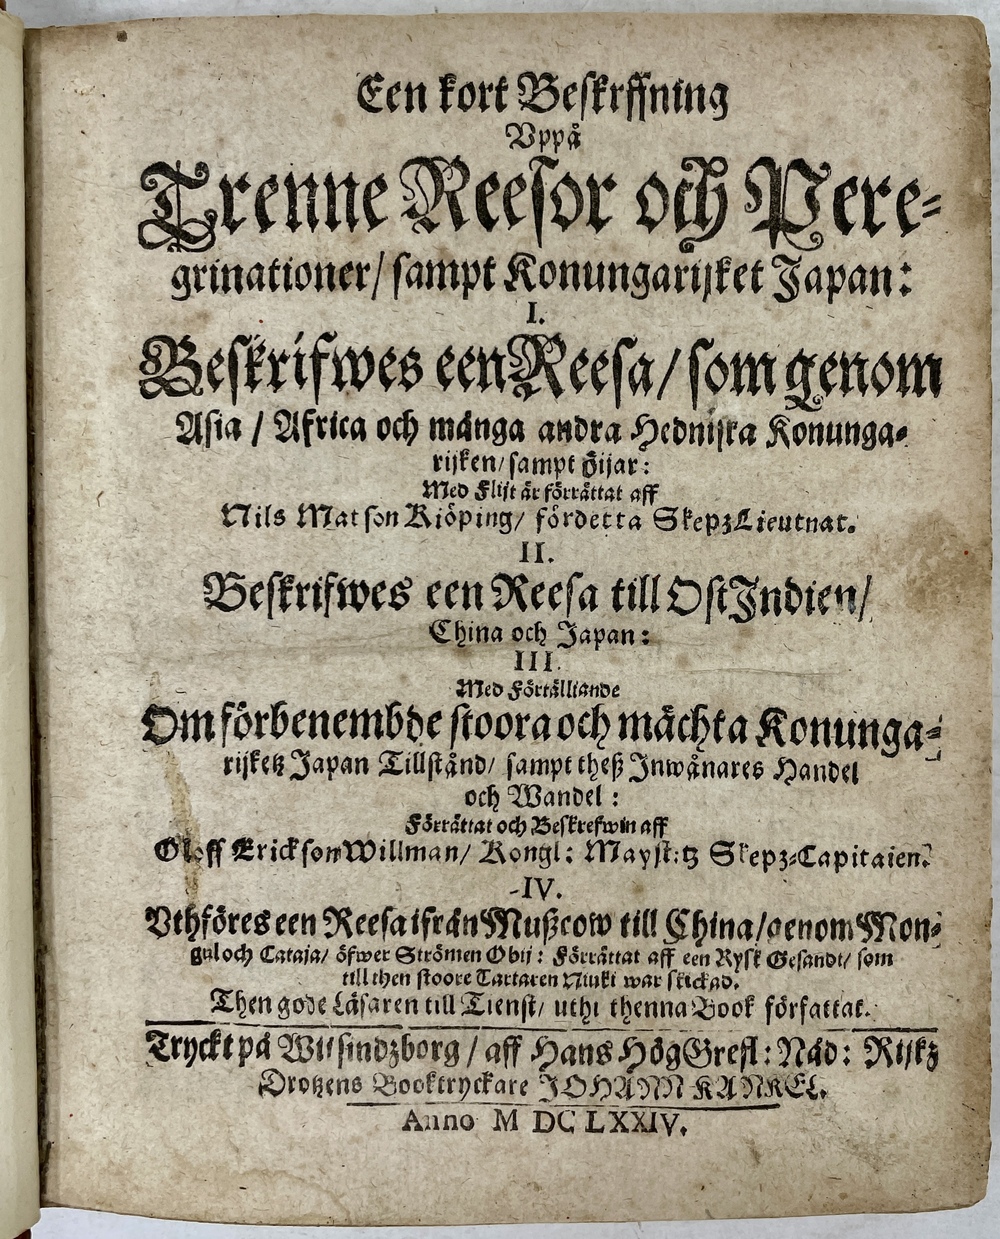 Een kort Beskrffning
Vppå
Trenne Reesor och Pere-
grinationer/ sampt Konungarijket Japan:
I.
Beskrifwes een Reesa/ som genom
Asia / Africa och många andra Hedniska Konunga-
rijken/ sampt Öijar:
Med Flijt är förrättat aff
Nils Matson Kiöping/ fördetta Skepz Lieutnat.
II.
Beskrifwes een Reesa till OstIndien/
China och Japan:
III.
Med Förtälliande
Om förbenembde stoora och mächta Konunga-
rijketz Japan Tillstånd/ sampt theß Inwånares Handel
och Wandel:
Förrättat och Beskrefwin aff
Oloff Erickson Willman/ Kongl: Mayst:tz Skepz-Capitaien.
IV.
Vthföres een Reesa ifrån Mußcow till China/ genom Mon-
gul och Cataja/ öfwer Strömen Obij: Förrättat aff een Rysk Gesandt/ som
till then stoore Tartaren Niuki war skickad.
Then gode Läsaren till Tienst/ uthi thenna Book författat.
Tryckt på Wijsindzborg / aff Hans HögGrefl: Nåd: Rijkz
Drotzens Booktryckare JOHANN KANKEL.
Anno M DC LXXIV.